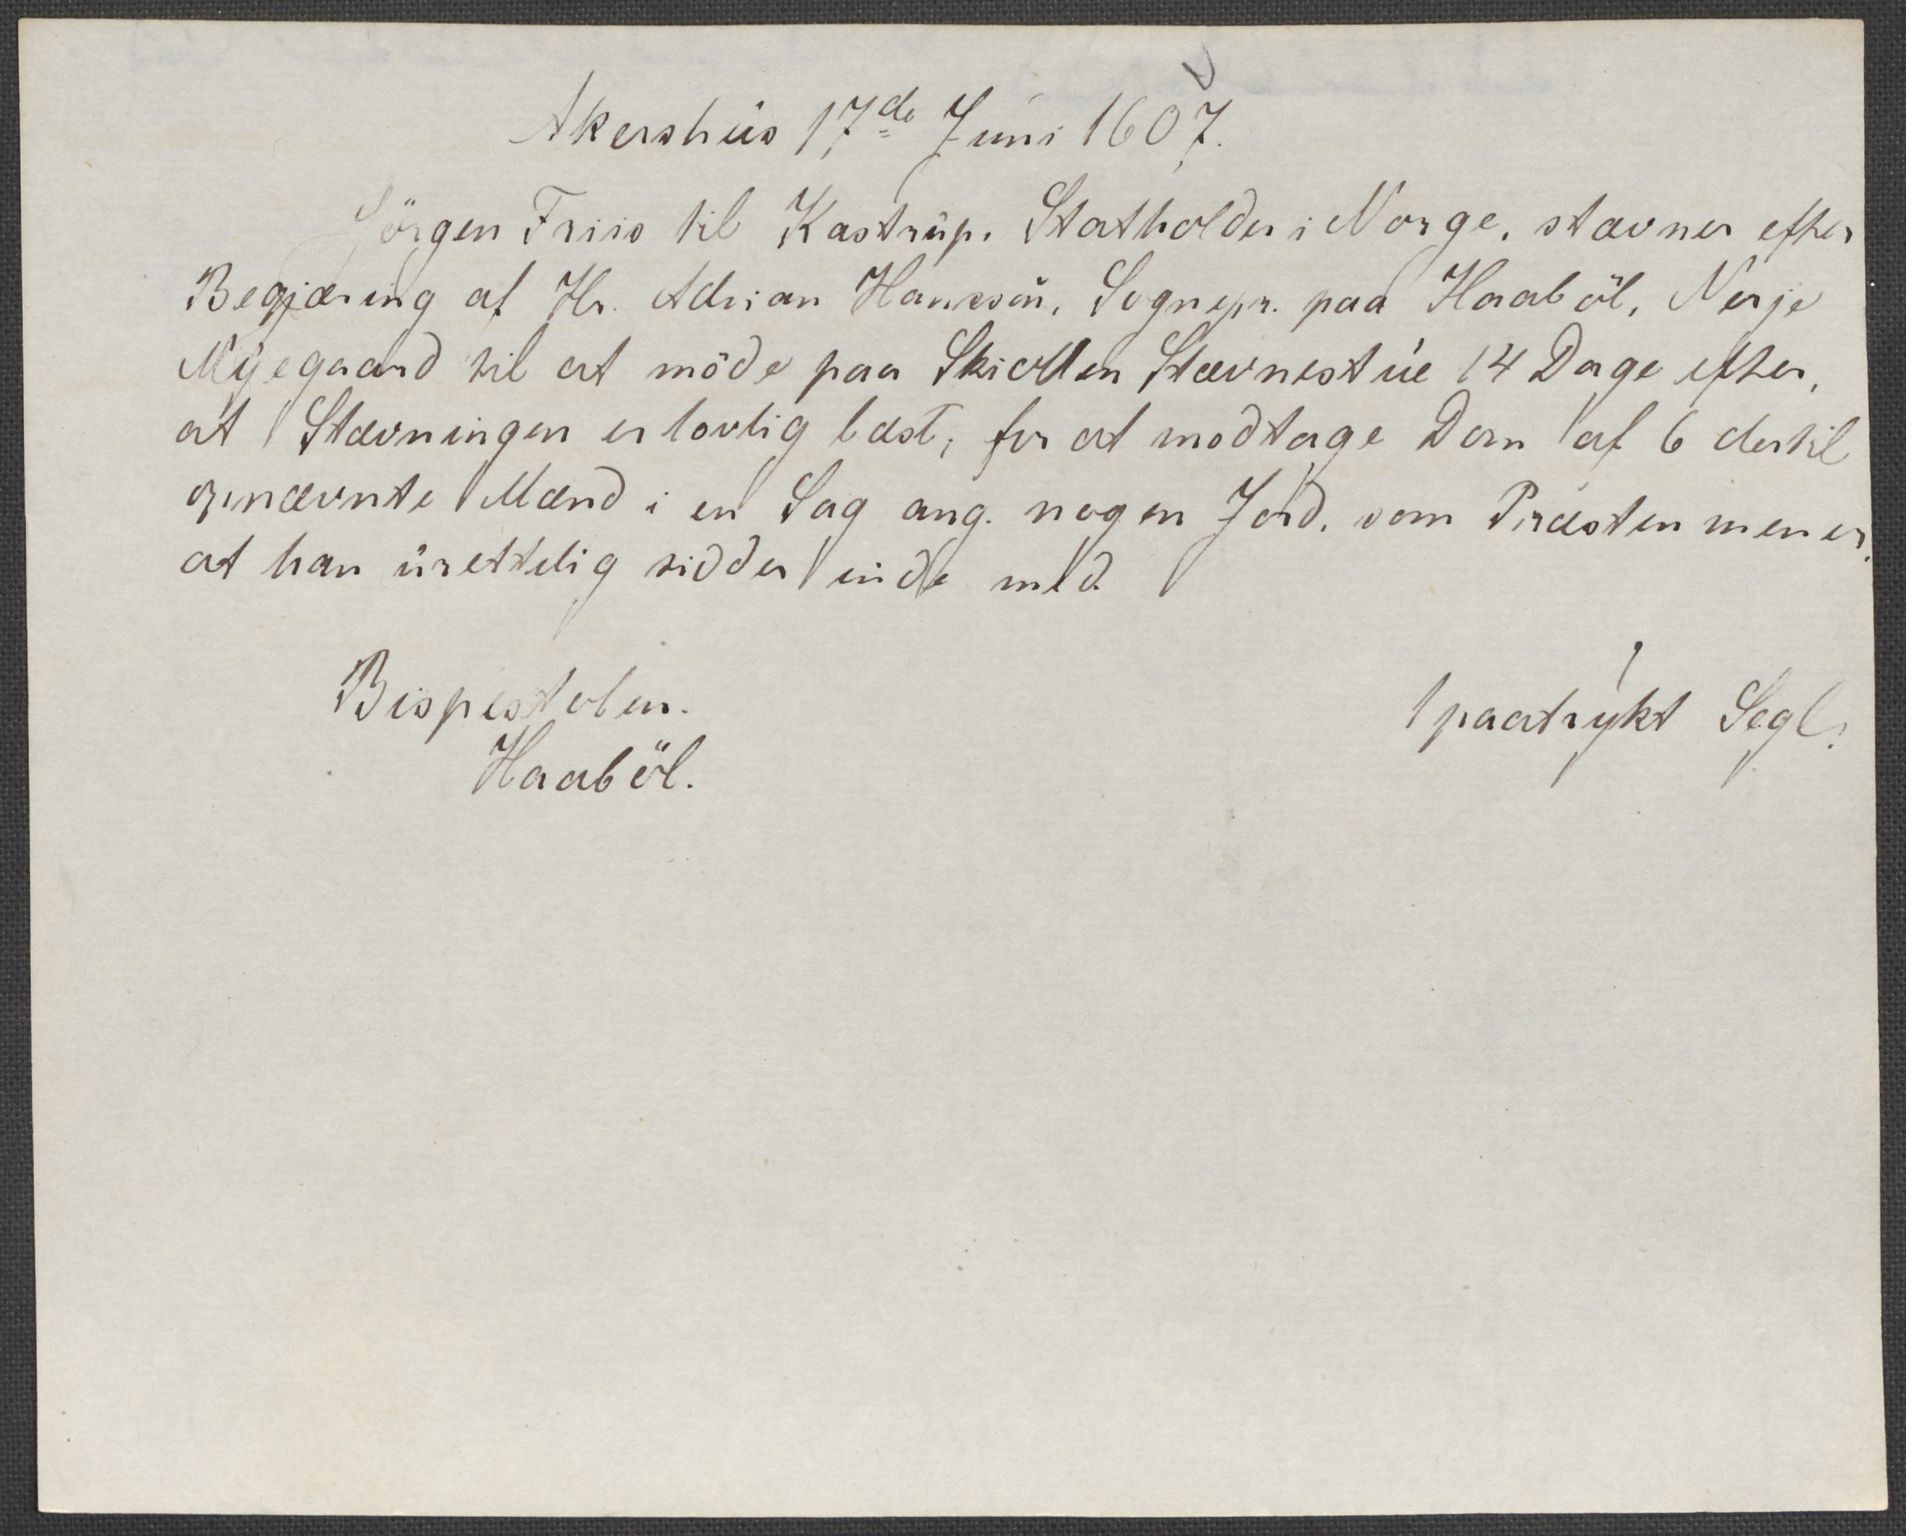 Akershus 17de Juni 1607.
Jörgen Friis til Kastrup, Statholder i Norge, stævner efter
Begjæring af Hr. Adrian Hanssön, Sognepr. paa Haaböl, Nerje
Myegaard til at möde paa Stævnestue 14 Dage efter,
at Stævningen er lovlig læst, for at modtage Dom af 6 dertil
opnævnte Mænd i en Sag ang. nogen Jord, som Præsten mener,
at han urettelig sidder inde med.
Bispestolen. 1 paatrykt Segl.
Haaböl.